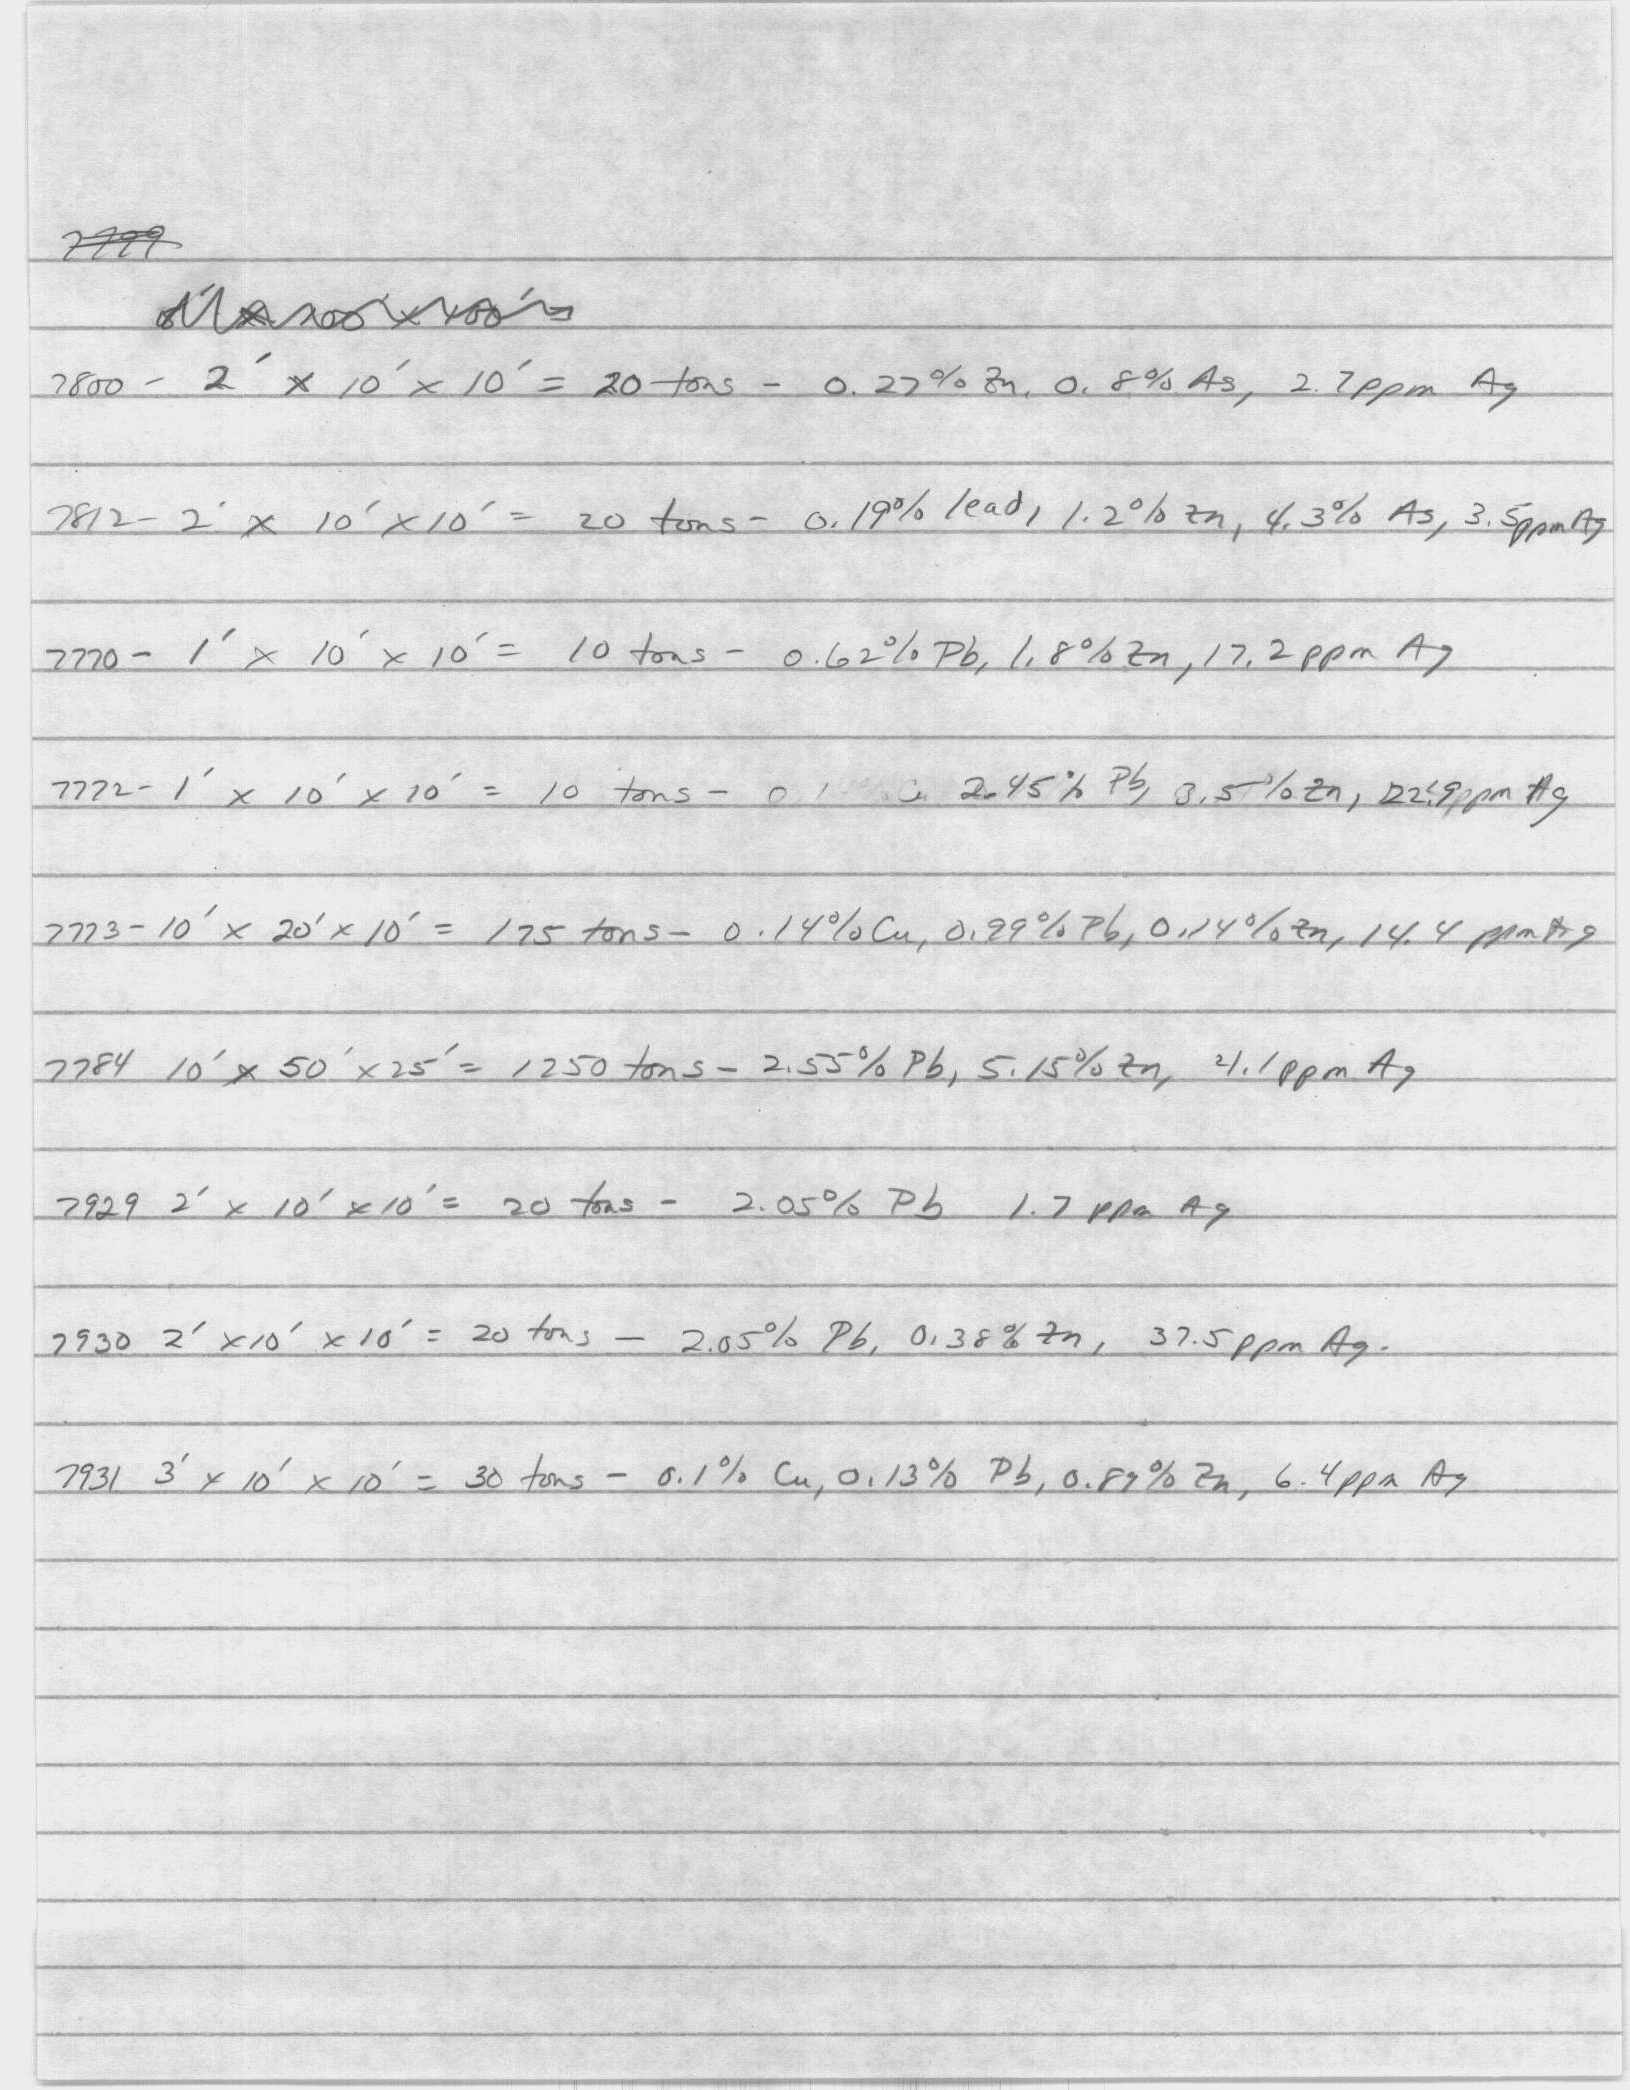 7799
7800 - 2' x 10' x 10' = 20 tons - 0.27% Zn, 0.8% As, 2.7ppm Ag
7812 - 2' x 10' x 10' = 20 tons - 0.19% lead, 1.2% Zn, 4.3% As, 3.5ppm Ag
7770 - 1' x 10' x 10' = 10 tons - 0.62% Pb, 1.8% Zn, 17.2 ppm Ag
7772 - 1' x 10' x 10' = 10 tons - 2.45% Pb, 3.5% Zn, ppm Ag
7773 - 10' x 20' x 10' = 175 tons - 0.14% Cu, 0.99% Pb, 0.14% Zn, 14.4 ppm Ag
7784 10' x 50' x 25' = 1250 tons - 2.55% Pb, 5.15% Zn, ppm Ag
7929 2' x 10' x 10' = 20 tons - 2.05% Pb 1.7 ppm Ag
7930 2' x 10' x 10' = 20 tons - 2.05% Pb, 0.38% Zn, 37.5 ppm Ag.
7931 3' x 10' x 10' = 30 tons - 0.1% Cu, 0.13% Pb, 0.89% Zn, 6.4 ppm Ag